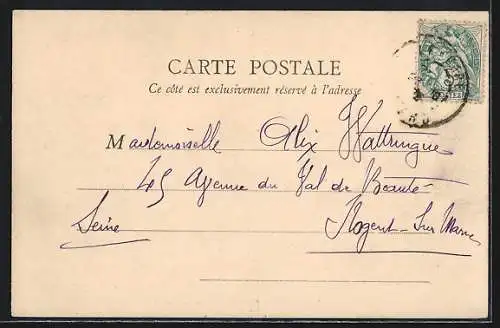 CARTE POSTALE
Ce côté est exclusivement réservé à l'adresse
Mademoiselle Alix Wattringue
45 Avenue du Val de Beauté
Nogent-Sur Marne
Seine